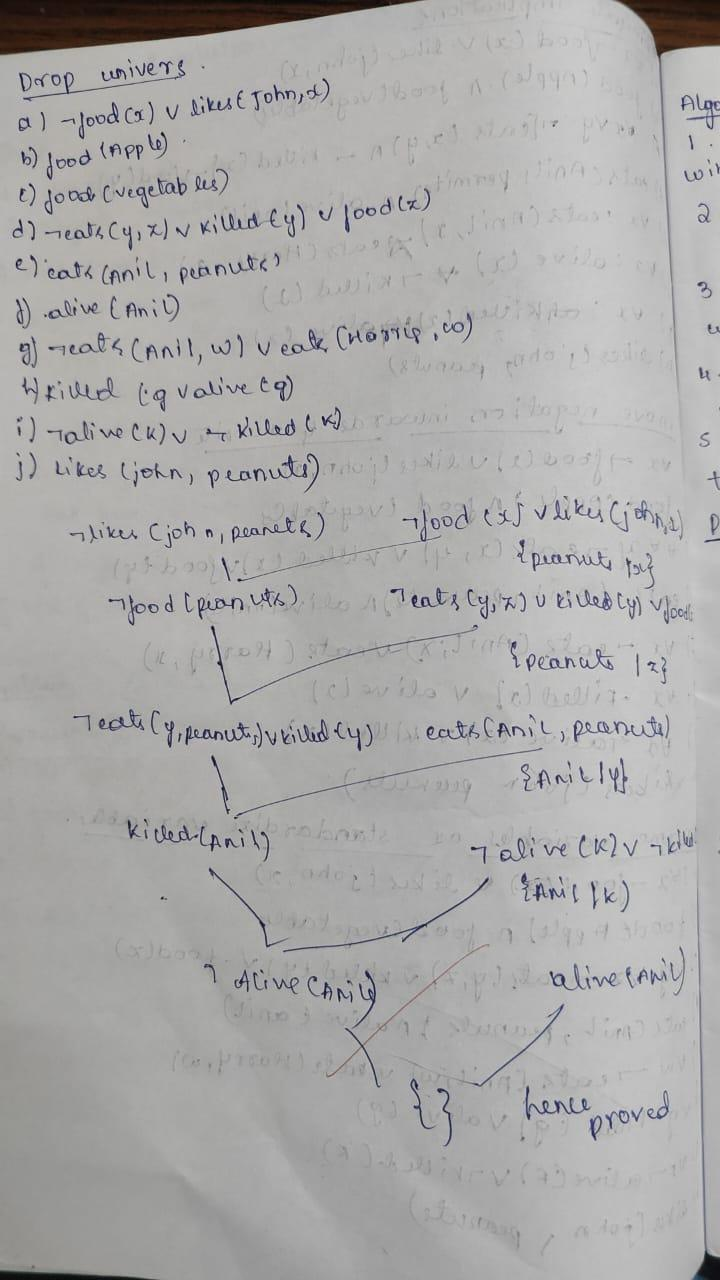 Drop univers.
a) ¬food(x) ∨ likes(John, x)
b) food (Apple).
c) food (vegetables)
d) ¬eats(y, z) ∨ killed(y) ∨ food(z)
e) eats (Anil, peanuts)
f) .alive (Anil)
g) ¬eats (Anil, w) ∨ eats (Harris, w)
h) killed (g ∨ alive (g)
i) ¬alive (k) ∨ ¬ killed (k)
j) Likes (john, peanuts)
¬likes (john, peanuts) ¬food (x) ∨ likes (john, x)
{peanuts /x}
¬food (peanuts) ¬eats (y, z) ∨ killed(y) ∨ food
{peanuts / z}
¬eats (y, peanuts) ∨ killed (y) eats (Anil, peanuts)
{Anil / y}
killed (Anil) ¬ alive (k) ∨ ¬kille
{Anil / k)
¬ Alive (Anil) alive (Anil)
{ } hence
proved
Algo
1.
wi
2
3
4.
5